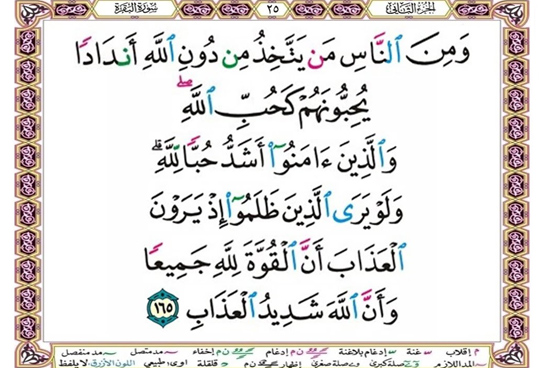 الجزء الثاني ٢٥ سورة البقرة
وَمِنَ ٱلنَّاسِ مَن يَتَّخِذُ مِن دُونِ ٱللَّهِ أَندَادًا
يُحِبُّونَهُمْ كَحُبِّ ٱللَّهِ ۖ
وَٱلَّذِينَ ءَامَنُوٓا۟ أَشَدُّ حُبًّا لِّلَّهِ ۗ
وَلَوْ يَرَى ٱلَّذِينَ ظَلَمُوٓا۟ إِذْ يَرَوْنَ
ٱلْعَذَابَ أَنَّ ٱلْقُوَّةَ لِلَّهِ جَمِيعًا
وَأَنَّ ٱللَّهَ شَدِيدُ ٱلْعَذَابِ ١٦٥
م إقلاب غنة إدغام بلاغنة ن م إدغام ن م إخفاء مد متصل مد منفصل
المد اللازم صلة كبرى صلة صغرى إظهار قلقلة طبيعي اللون الأزرق لا يلفظ